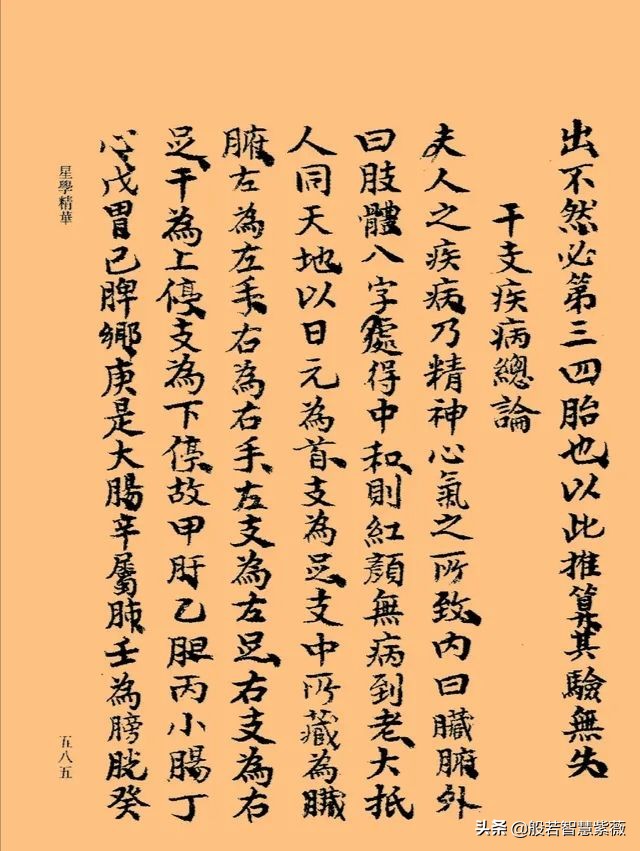 出不然必第三四胎也以此推算其驗無失
干支疾病總論
夫人之疾病乃精神心氣之所致內曰臟腑外
曰肢體八字處得中和則紅顏無病到老大抵
人同天地以日元為首支為足支中所藏為臟
腑左為左手右為右手左支為左足右支為右
足干為上停支為下停故甲肝乙胆丙小腸丁
心戊胃己脾鄉庚是大腸辛屬肺壬為膀胱癸
星學精華
五八五
头条@般若智慧紫薇